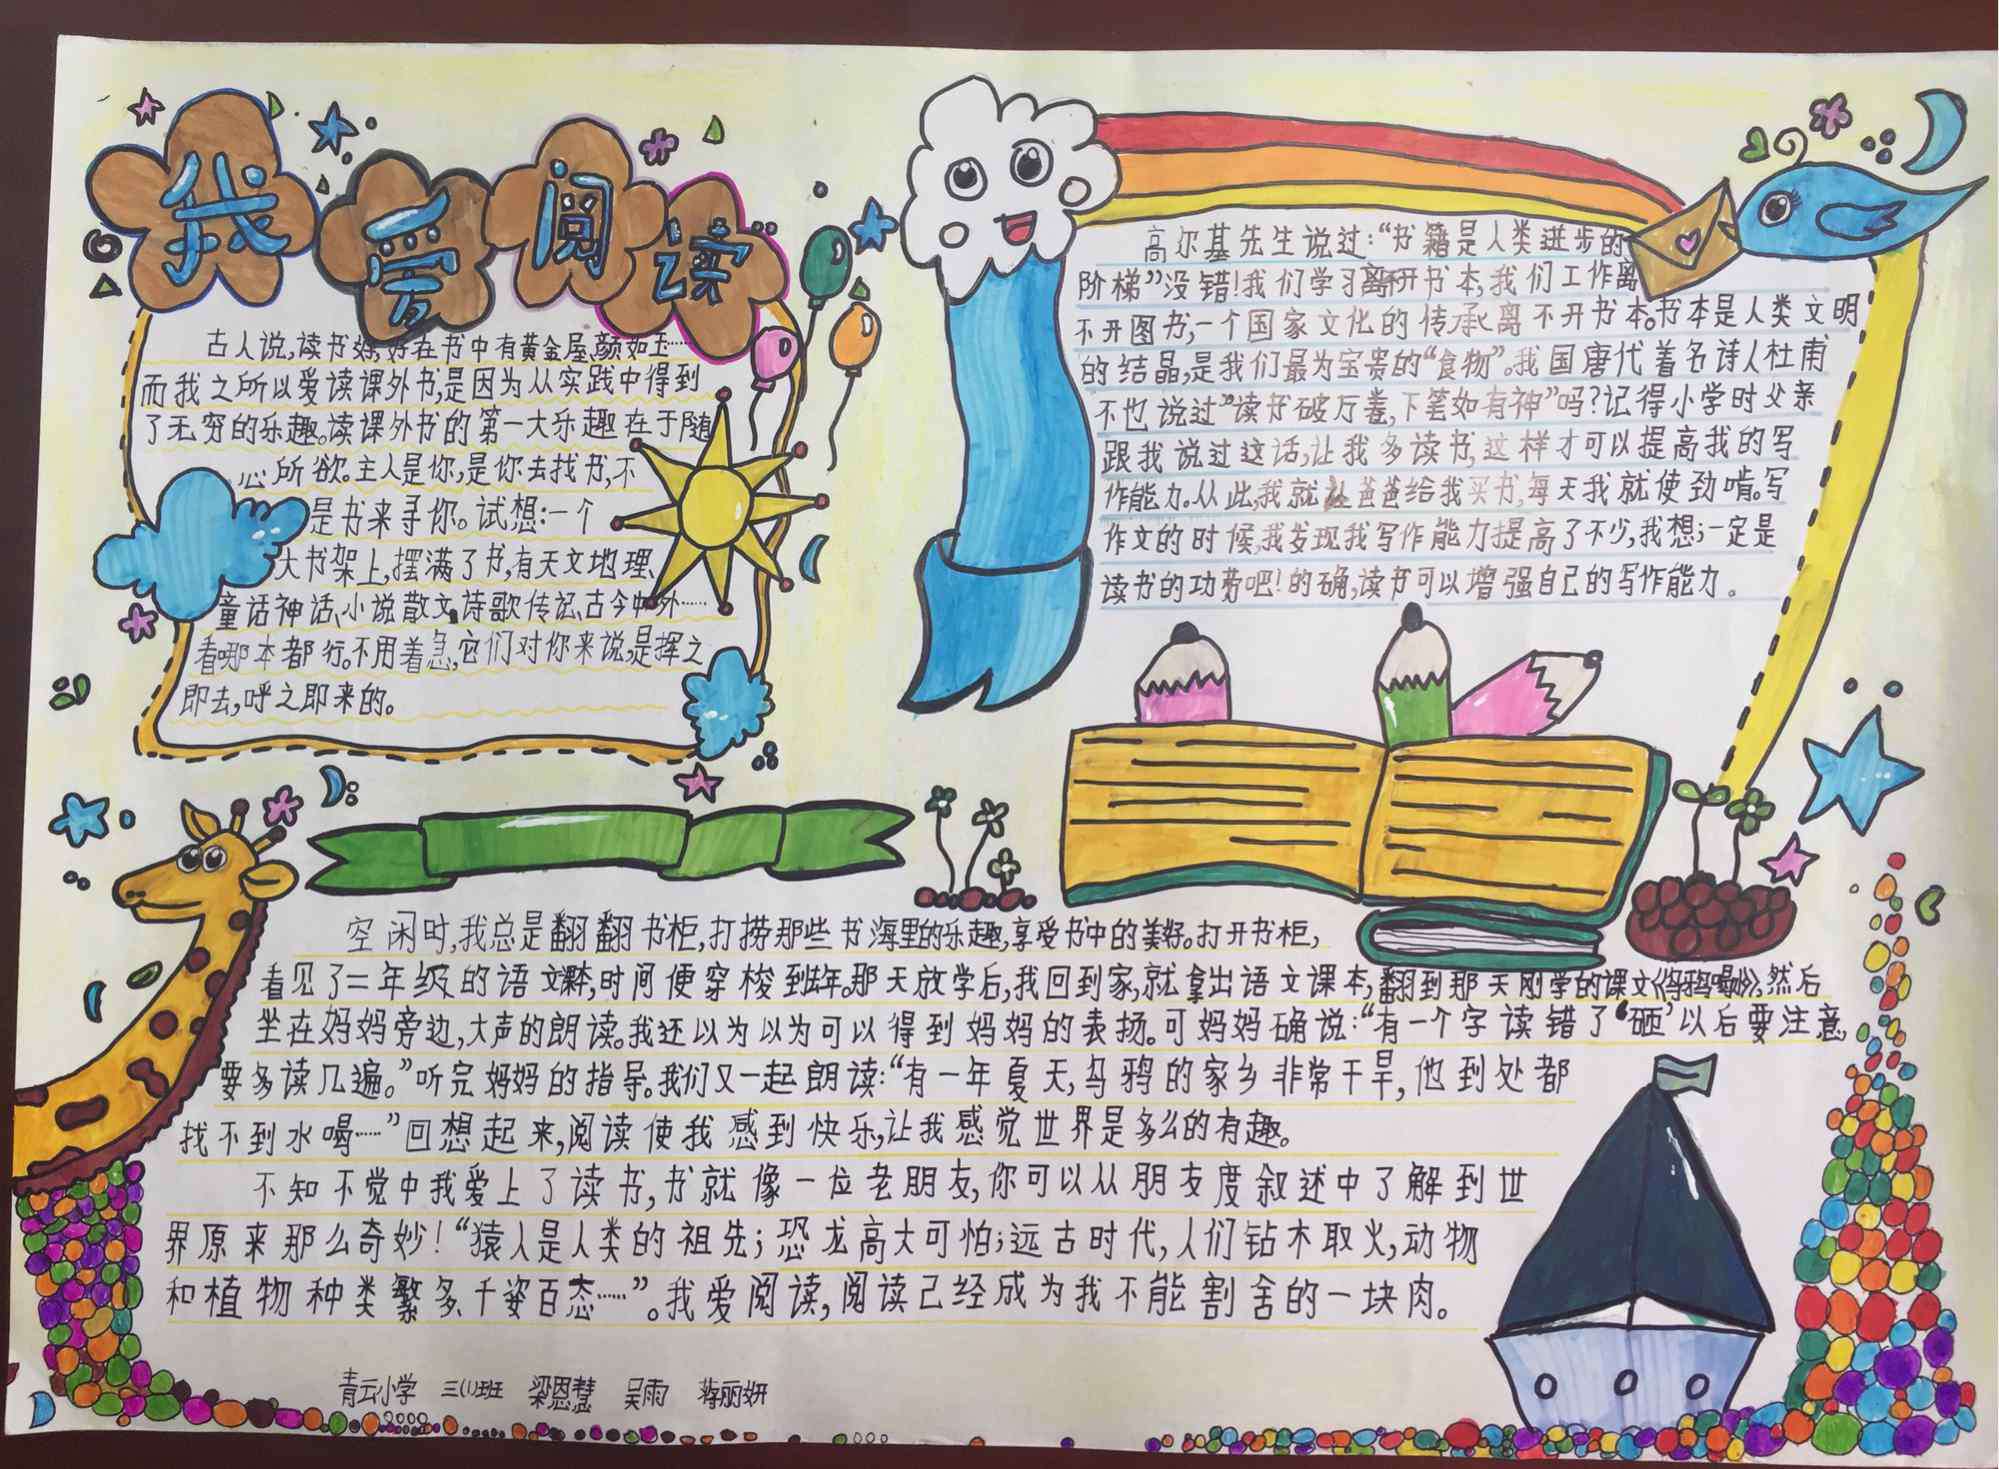 我爱阅读
古人说,读书好,好在书中有黄金屋、颜如玉……
而我之所以爱读课外书,是因为从实践中得到
了无穷的乐趣。读课外书的第一大乐趣在于随
心所欲。主人是你,是你去找书,不
是书来寻你。试想:一个
大书架上,摆满了书,有天文地理、
童话神话、小说散文、诗歌传记、古今中外……
看哪本都行。不用着急,它们对你来说,是挥之
即去,呼之即来的。
高尔基先生说过:“书籍是人类进步的
阶梯”没错!我们学习离研书本,我们工作离
不开图书,一个国家文化的传承离不开书本。书本是人类文明
的结晶,是我们最为宝贵的“食物”。我国唐代着名诗人杜甫
不也说过”读书破万卷,下笔如有神”吗?记得小学时父亲
跟我说过这话,让我多读书,这样才可以提高我的写
作能力。从此,我就让爸爸给我买书,每天我就使劲啃。写
作文的时候,我发现我写作能力提高了不少,我想;一定是
读书的功劳吧!的确,读书可以增强自己的写作能力。
空闲时,我总是翻翻书柜,打捞那些书海里的乐趣,享受书中的美好。打开书柜,
看见了二年级的语文课本,时间便穿梭到去年。那天放学后,我回到家,就拿出语文课本,翻到那天刚学的课文《乌鸦喝水》,然后
坐在妈妈旁边,大声的朗读。我还以为以为可以得到妈妈的表扬。可妈妈确说:“有一个字读错了‘砸’以后要注意,
要多读几遍。”听完妈妈的指导。我们又一起朗读:“有一年夏天,乌鸦的家乡非常干旱,他到处都
找不到水喝……”回想起来,阅读使我感到快乐,让我感觉世界是多么的有趣。
不知不觉中我爱上了读书,书就像一位老朋友,你可以从朋友度叙述中了解到世
界原来那么奇妙!“猿人是人类的祖先;恐龙高大可怕;远古时代,人们钻木取火,动物
和植物种类繁多、千姿百态……”。我爱阅读,阅读已经成为我不能割舍的一块肉。
青云小学 三(1)班 梁恩慧 吴雨 蒋丽妍